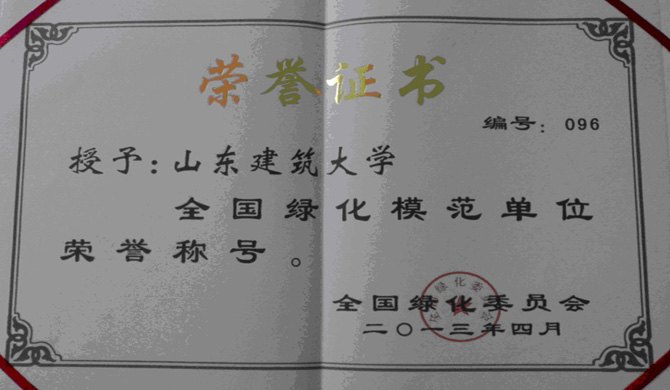 荣誉证书
编号：096
授予：山东建筑大学
全国绿化模范单位
荣誉称号。
全国绿化委员会
二〇一三年四月